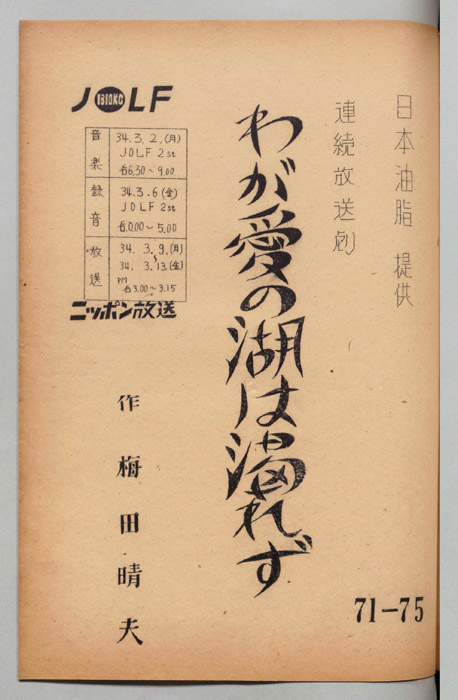 日本油脂 提供
連続放送劇
わが愛の湖は涸れず
71-75
JOLF
1310KC
音楽
34.3.2.(月)
JOLF 2st
后6.30〜9.00
録音
34.3.6(金)
JOLF 2st
后0.00〜5.00
放送
34.3.9.(月)
〜
34.3.13.(金)
PM
后3.00〜3.15
ニッポン放送
作 梅田晴夫